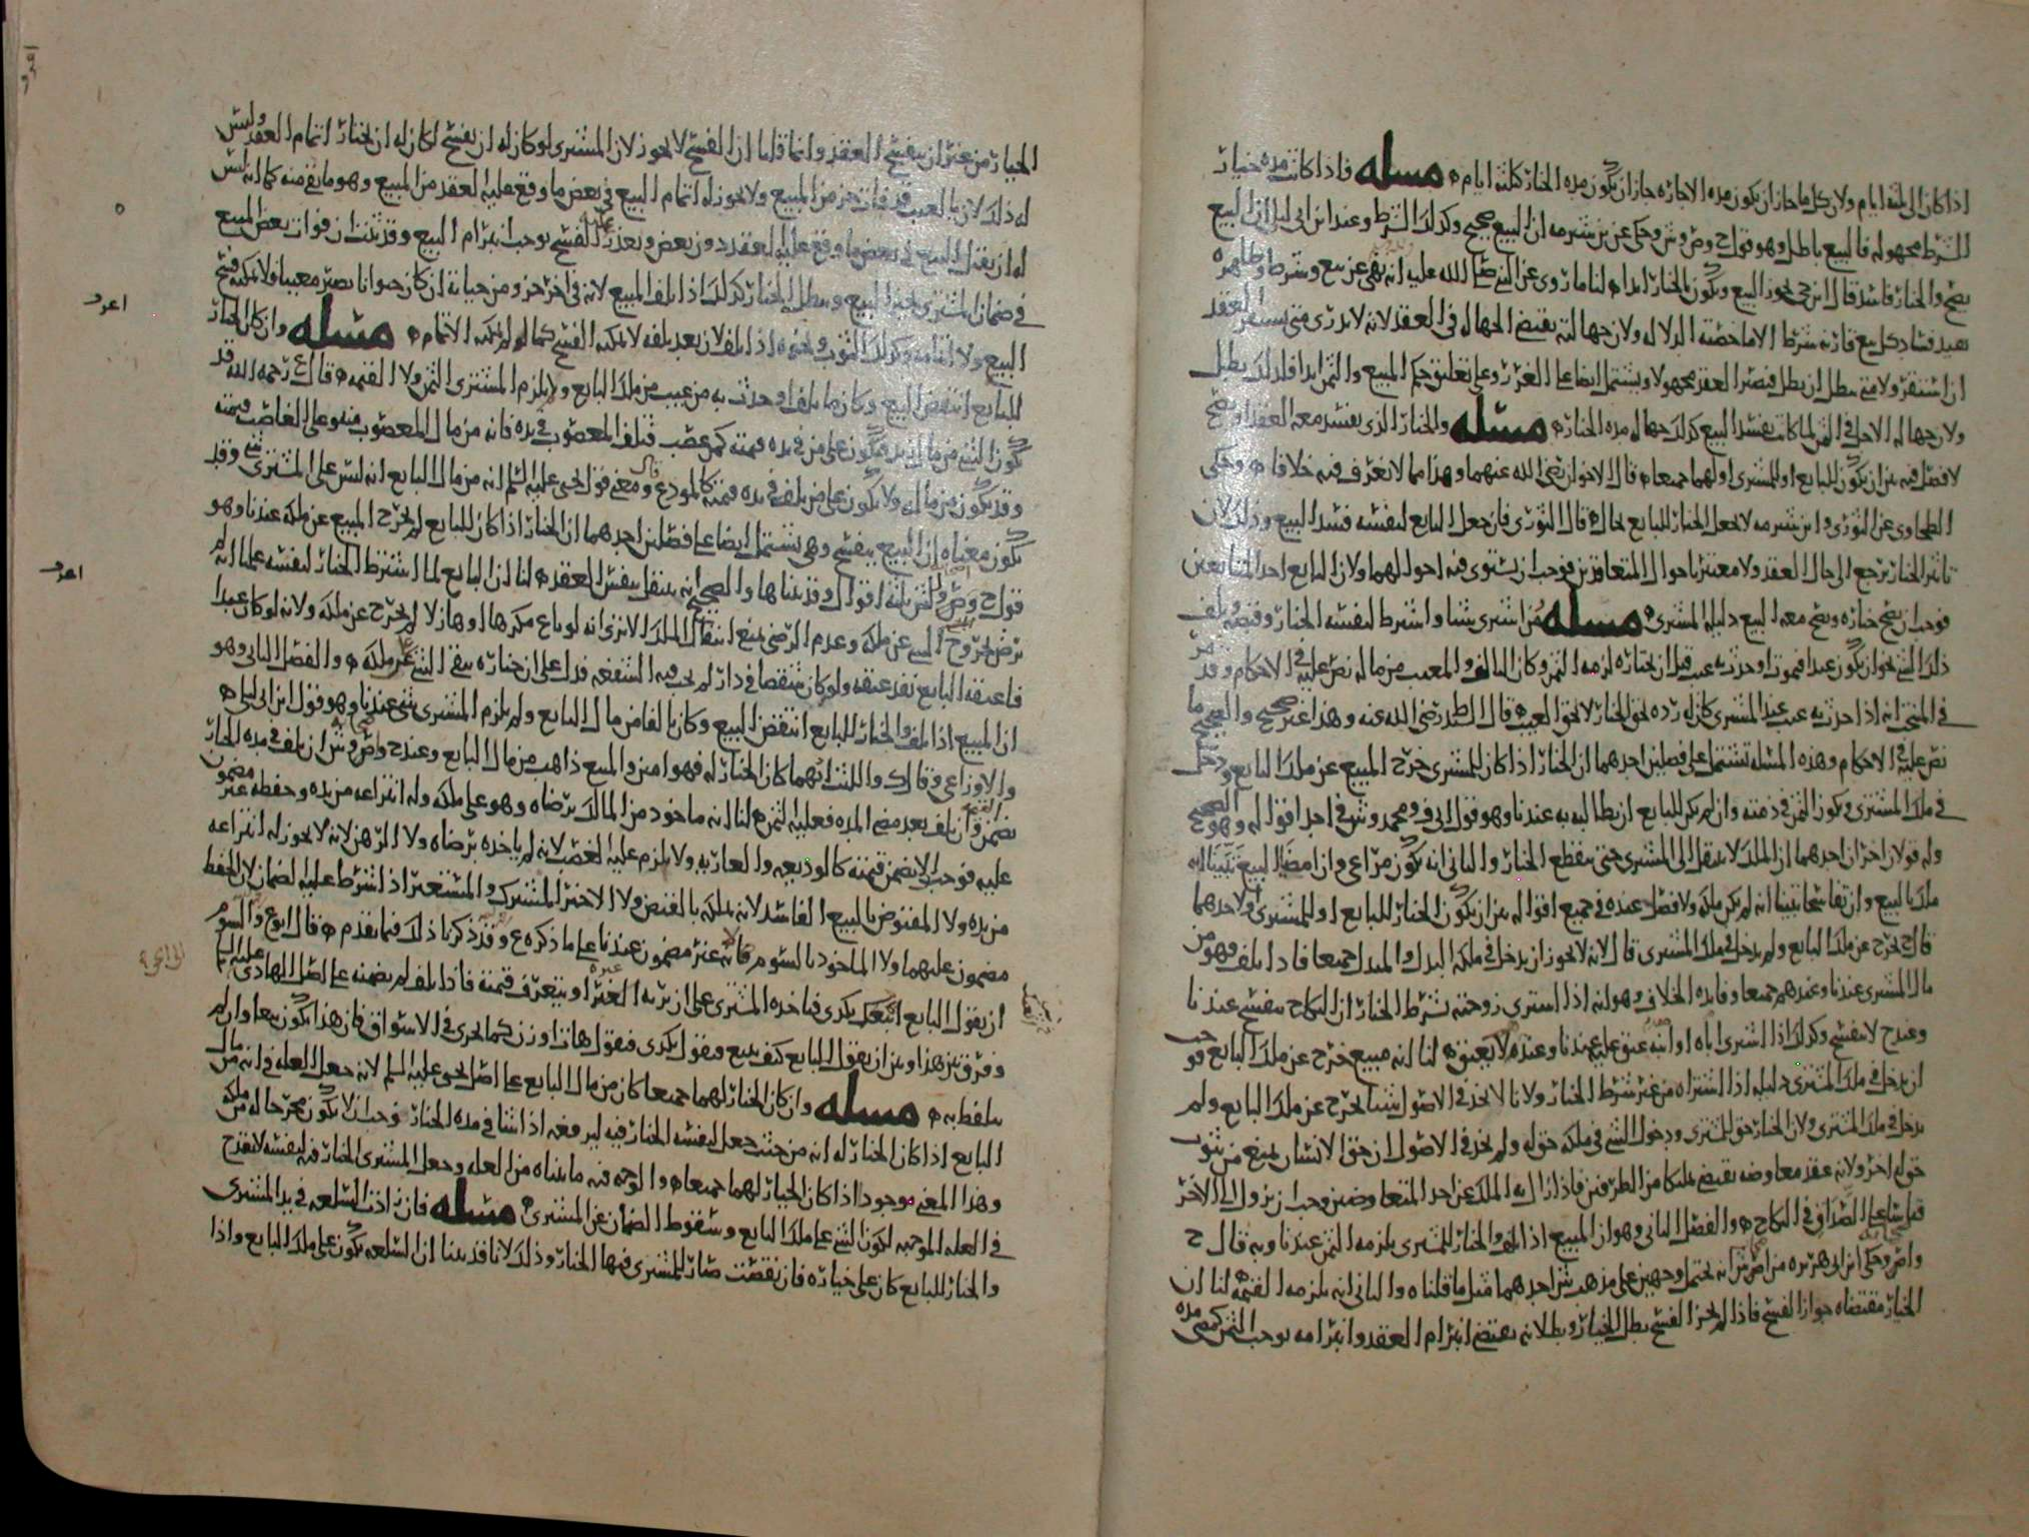 اذا كان الى ثلثة ايام ولان كل ما جاز ان يكون مده الاجاره جاز ان يكون مده الخيار كثلثة ايام ه مسله فاذا كانت مده خيار
الشرط مجهوله فالبيع باطل وهو قول ح وص وش وحكى عن بن شبرمه ان البيع صحيح وكذلك الشرط وعند ابن ابى ليلى ان البيع
يصح والخيار فاسد قال ابن حى يجوز البيع ويكون بالخيار ابدا ه لنا ما روى عن النبى صلى الله عليه انه نهى عن بيع وشرط وظاهره
يفيد فساد كل بيع قارنه شرط الا ما خصته الدلاله ولان جهالته يقتضى الجهاله فى العقد لانه لا يدرى متى يستقر العقد
ان استقر ولا متى يبطل ان بطل فيصير العقد مجهولا ويشتمل ايضا على الغرر وعلى تعليق حكم المبيع والثمن ابدا فلذلك بطل
ولان جهاله الاجل فى الثمن لما كانت يفسد البيع كذلك جهاله مده الخيار ه مسله والخيار الذى يفسد معه العقد او يصح
لا فصل فيه بين ان يكون للبايع او للمشترى او لهما جميعا ه قال الاخوان رضى الله عنهما وهذا مما لا نعرف فيه خلافا ه وحكى
الطحاوى عن الثورى وابن شبرمه لا يجعل الخيار للبايع بحال ه قال الثورى فان جعل البايع لنفسه فسد البيع وذلك لان
تاثير الخيار يرجع الى حال العقد ولا معتبر باحوال المتعاقدين فوجب ان يستوى فيه احوالهما ولان البايع احد المتبايعين
فوجب ان يصح خياره ويصح معه البيع دليله المشترى ه مسله فمن اشترى شيئا واشترط لنفسه الخيار وقبضه وتلف
ذلك الشى نحو ان يكون عبدا فيموت او حدث به عيب قبل ان يختاره لزمه الثمن وكان التالف والمعيب من ماله نص عليه فى الاحكام وقد مر
فى المنتخب انه اذا حدث به عيب عند المشترى كان له رده بحق الخيار لا بحق العيب ه قال السيد ط رضى الله عنه وهذا غير صحيح والصحيح ما
نص عليه فى الاحكام وهذه المسله تشتمل على فصلين احدهما ان الخيار اذا كان للمشترى خرج المبيع عن ملك البايع ودخل
فى ملك المشترى ويكون الثمن فى ذمته وان لم يكن للبايع ان يطالبه به عندنا وهو قول ابى ف ومحمد وش فى احد اقواله وهو الصحيح
وله قولان اخران احدهما ان الملك لا ينتقل الى المشترى حتى ينقطع الخيار والثانى انه يكون مراعى وان امضيا البيع تبينا انه
ملك بالبيع وان تفاسخا تبينا انه لم يكن ملكه ولا فصل عنده فى جميع اقواله بين ان يكون الخيار للبايع او للمشترى او لاحدهما
قال ح يخرج عن ملك البايع ولم يدخل فى ملك المشترى قال لانه لا يجوز ان يدخل فى ملكه البدل والمبدل جميعا فاذا تلف فهو من
مال المشترى عندنا وعندهم جميعا وفايده الخلاف هو انه اذا اشترى زوجته بشرط الخيار ان النكاح ينفسخ عندنا
وعند ح لا ينفسخ وكذلك اذا اشترى اباه او ابنه عتق عليه عندنا وعنده لا يعتق ه لنا انه مبيع خرج عن ملك البايع فوجب
ان يدخل فى ملك المشترى دليله اذا اشتراه من غير شرط الخيار ولانا لا نجد فى الاصول شيئا يخرج عن ملك البايع ولم
يدخل فى ملك المشترى ولان الخيار حق للمشترى ودخول الشى فى ملكه حق له ولم نجد فى الاصول ان حق الانسان يمنع من ثبوت
حق له اخر ولانه عقد معاوضه يقتضى تمليكا من الطرفين فاذا زال به الملك عن احد المتعاوضين وجب ان يزول الى الاخر
قياسا على الصداق فى النكاح ه والفصل الثانى وهو ان المبيع اذا تلف والخيار للمشترى يلزمه الثمن عندنا وبه قال ح
واص وحكى ابن ابى هريره من اصش انه يحتمل وجهين على مذهب ش احدهما مثل ما قلناه والثانى انه يلزمه القيمه لنا ان
الخيار مقتضاه جواز الفسخ فاذا لم يجز الفسخ بطل الخيار وبطلانه يقتضى انبرام العقد وانبرامه يوجب الثمن كمضى مده
الخيار من غير ان يفسخ العقد وانما قلنا ان الفسخ لا يجوز لان المشترى لو كان له ان يفسخ لكان له ان يختار اتمام العقد وليس
له ذلك لان بالعيب قد فات جزء من المبيع ولا يجوز له اتمام البيع فى بعض ما وقع عليه العقد من المبيع وهو ما بقى منه كما انه ليس
له ان يقبل البيع فى بعض ما وقع عليه العقد دون بعض وتعذر الفسخ عليه يوجب انبرام البيع وقد ثبت ان فوات بعض المبيع
فى ضمان المشترى يلزم البيع ويبطل الخيار كذلك اذا تلف المبيع لانه فى اخر جزء من حياته ان كان حيوانا يصير معيبا فلا يمكنه فسخ
البيع ولا اتمامه وكذلك الثوب ونحوه اذا تلف لان بعد تلفه لا يمكنه الفسخ كما له لم يمكنه الاتمام ه مسله وان كان الخيار
للبايع انتقض البيع وكان ما تلف او حدث به من عيب من ملك البايع ولا يلزم المشترى الثمن ولا القيمه ه قال ع رحمه الله قد
يكون الشى من مال زيد فيكون على من فى يده قيمته كمن غصب فتلف المغصوب فى يده فانه من مال المغصوب منه وعلى الغاصب قيمته
وقد يكون من ماله ولا يكون على من تلف فى يده قيمته كالمودع قال ومعنى قول يحيى عليه السلم انه من مال البايع انه ليس على المشترى شى وقد
يكون معناه ان البيع ينفسخ وهى تشتمل ايضا على فصلين احدهما ان الخيار اذا كان للبايع لم يخرج المبيع عن ملكه عندنا وهو
قول ح وص وللش ثلثة اقوال وقد بيناها والصحيح انه ينتقل بنفس العقد ه لنا ان البايع لما اشترط الخيار لنفسه علمنا انه لم
يرض بخروج الشى عن ملكه وعدم الرضى يمنع انتقال الملك الا ترى انه لو باع مكرها او هازلا لم يخرج عن ملكه ولانه لو كان عبدا
فاعتقه البايع نفذ عتقه ولو كان شقصا فى دار لم يجب فيه الشفعه فدل على ان خياره يبقى الشى على ملكه ه والفصل الثانى وهو
ان المبيع اذا تلف والخيار للبايع انتقض البيع وكان تالفا من مال البايع ولم يلزم المشترى شى عندنا وهو قول ابن ابى ليلى ه
والاوزاعى وقال ك والليث ايهما كان الخيار له فهو امين والمبيع ذاهب من مال البايع وعند ح واص وش ان تلف فى مده الخيار
يضمن القيمه وان تلف بعد مضى المده فعليه الثمن ه لنا انه ماخوذ من المالك برضاه وهو على ملكه وله انتزاعه من يده وحفظه غير مضمون
عليه فوجب الا يضمن قيمته كالوديعه والعاريه ولا يلزم عليه الغصب لانه لم ياخذه برضاه ولا الرهن لانه لا يجوز له انتزاعه
من يده ولا المقبوض بالبيع الفاسد لانه يملكه بالقبض ولا الاجير المشترك والمستعير اذا شرط عليه الضمان لان الحفظ
مضمون عليهما ولا الماخوذ بالسوم فانه غير مضمون عندنا على ما ذكره ع وقد ذكرنا ذلك فيما تقدم ه قال ابوع والسوم
ان يقول البايع ابيعك بكذى فياخذه المشترى على ان يريه الغير او يتعرف قيمته فاذا تلف لم يضمنه على اصل الهادى عليه السلم
وفرق بين هذا وبين ان يقول للبايع كيف تبيع فيقول بكذى فيقول هات او زن كما يجرى فى الاسواق فان هذا يكون بيعا وان لم
يتلفظ به ه مسله وان كان الخيار لهما جميعا كان من مال البايع على اصل يحيى عليه السلم لانه جعل العله فى انه من مال
البايع اذا كان الخيار له انه من حيث جعل لنفسه الخيار فيه ليرفعه اذا شا فى مده الخيار فوجب ان لا يكون مخرجا له من ملكه
وهذا المعنى موجود اذا كان الخيار لهما جميعا ه والوجه فيه ما بيناه من العله وجعل المشترى الخيار فيه لنفسه لا يقدح
فى العله الموجبه لكون الشى على ملك البايع وسقوط الضمان عن المشترى ه مسله فان زادت السلعه فى يد المشترى
والخيار للبايع كان على خياره فان نقصت صار للمشترى فيها الخيار وذلك لانا قد بينا ان السلعه يكون على ملك البايع واذا